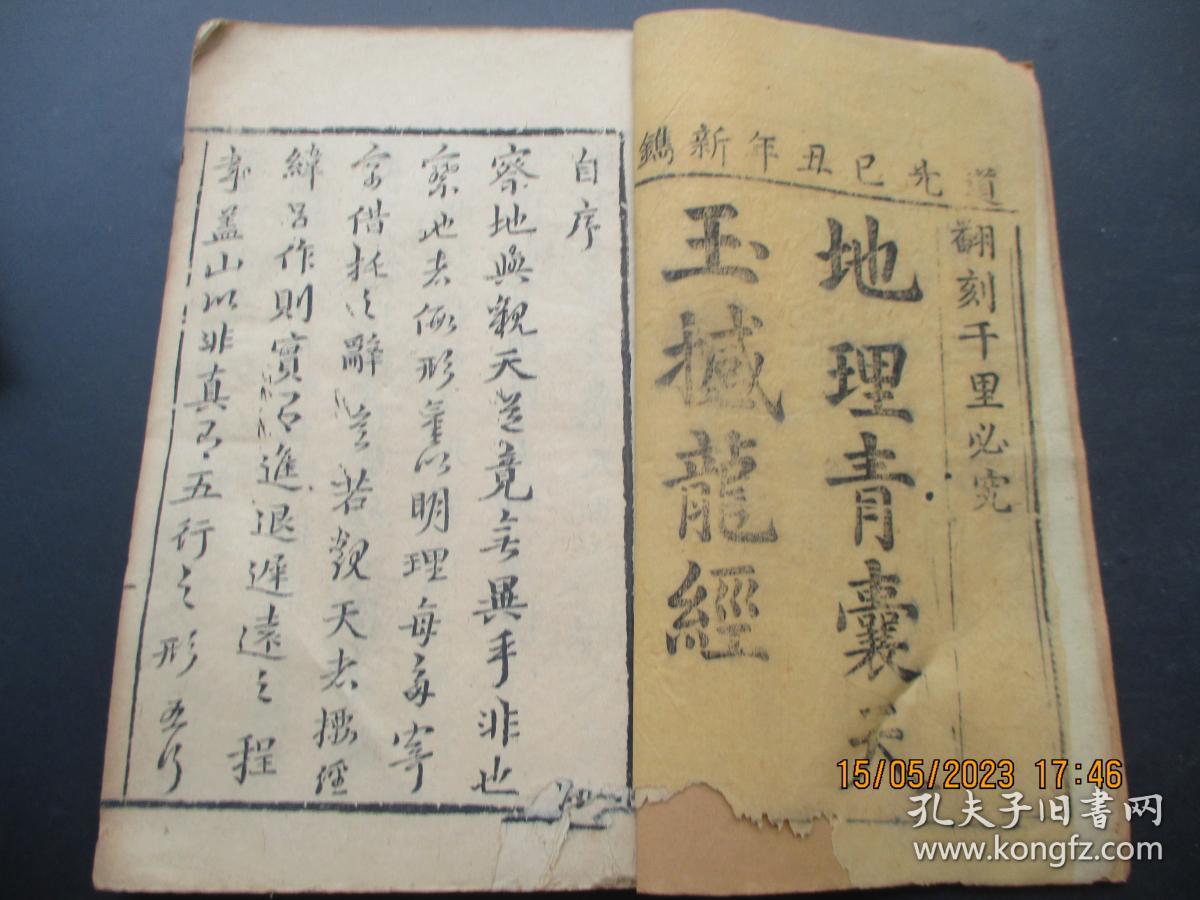 道光己丑年新鐫
翻刻千里必究
地理青囊天
玉撼龍經
自序
察地與觀天豈竟無異乎非也
察地者傍形氣以明理每每寄
言借托之辭
若觀天者攬經
緯以作則實有進退遲遠之程
蓋山川非真有五行之形五行
15/05/2023 17:46
孔夫子旧书网
www.kongfz.com